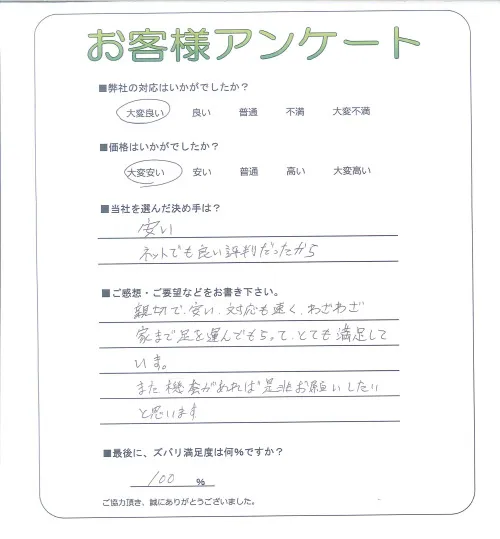 お客様アンケート
■弊社の対応はいかがでしたか？
大変良い 良い 普通 不満 大変不満
■価格はいかがでしたか？
大変安い 安い 普通 高い 大変高い
■当社を選んだ決め手は？
安い
ネットでも良い評判だったから
■ご感想・ご要望などをお書き下さい。
親切で、安い、対応も速く、わざわざ
家まで足を運んでもらって、とても満足して
います。
また機会があれば是非お願いしたい
と思います
■最後に、ズバリ満足度は何%ですか？
100 %
ご協力頂き、誠にありがとうございました。